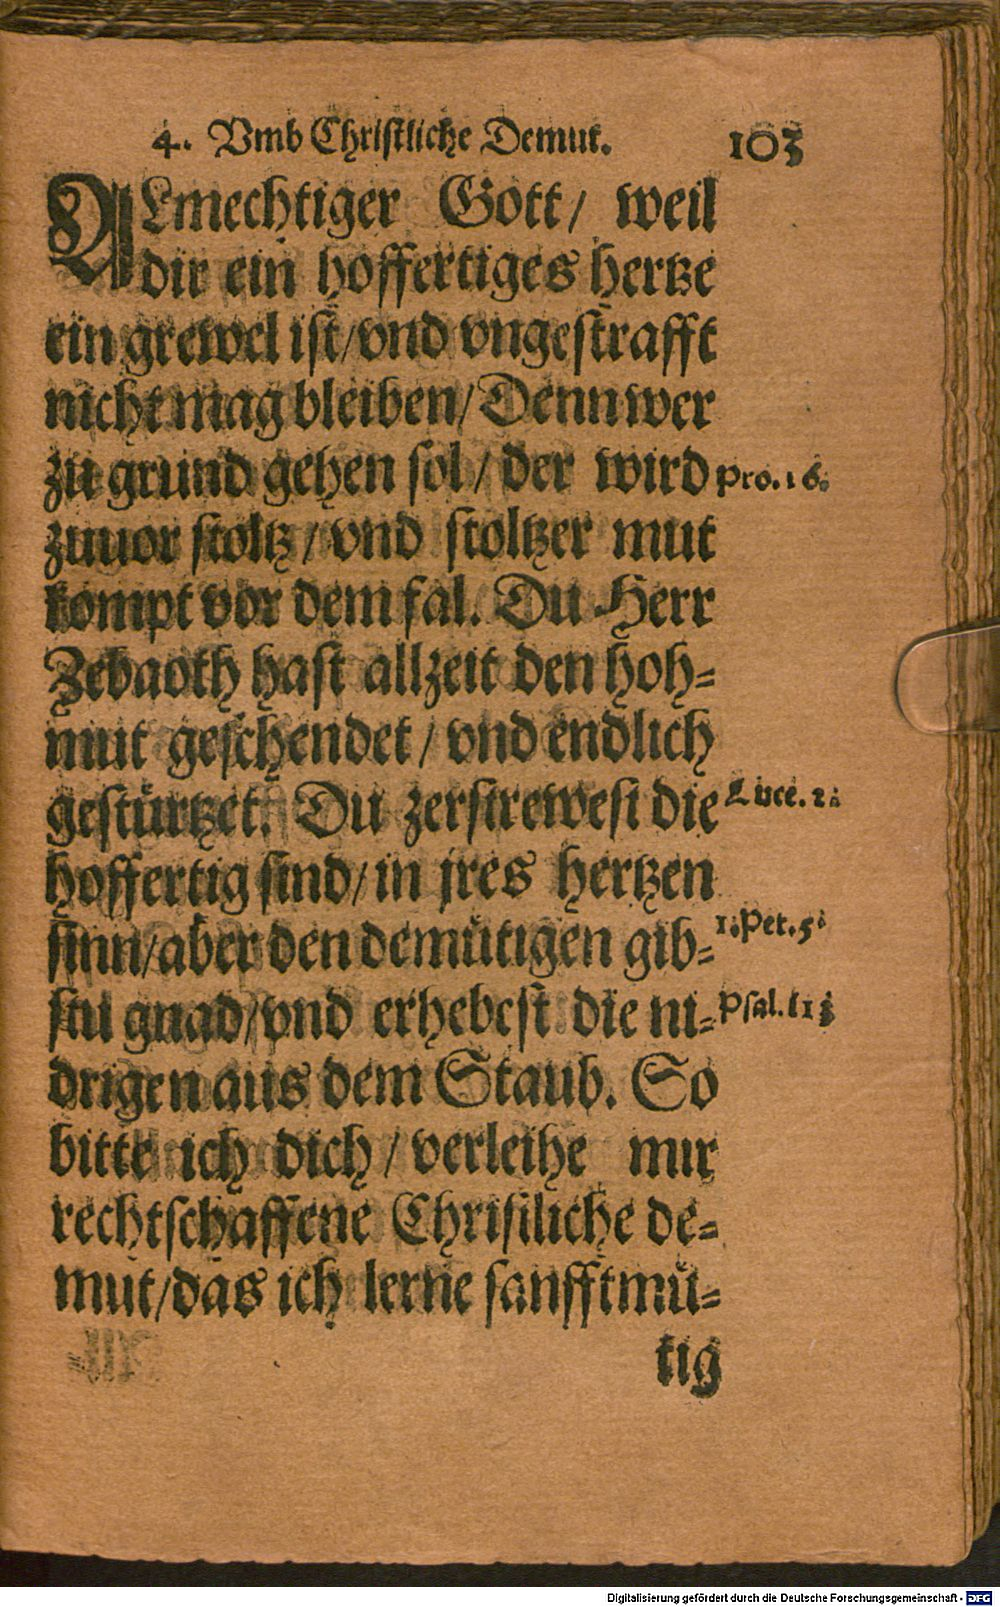 4. Vmb Christliche Demut. 103
ALmechtiger Gott/ weil
dir ein hoffertiges hertze
ein grewel ist/vnd vngestrafft
nicht mag bleiben/Denn wer
zu grund gehen sol/ der wird Pro.16.
zuuor stoltz/ vnd stoltzer mut
kompt vor dem fal. Du Herr
Zebaoth hast allzeit den hoh-
mut geschendet/ vnd endlich
gestürtzet. Du zerstrewest die Luce.1.
hoffertig sind/in jres hertzen
sinn/aber den demütigen gib- 1.Pet.5.
stu gnad/vnd erhebest die ni- Psal.113
drigen aus dem Staub. So
bitte ich dich/ verleihe mir
rechtschaffene Christliche de-
mut/das ich lerne sanfftmü-
tig
Digitalisierung gefördert durch die Deutsche Forschungsgemeinschaft - DFG